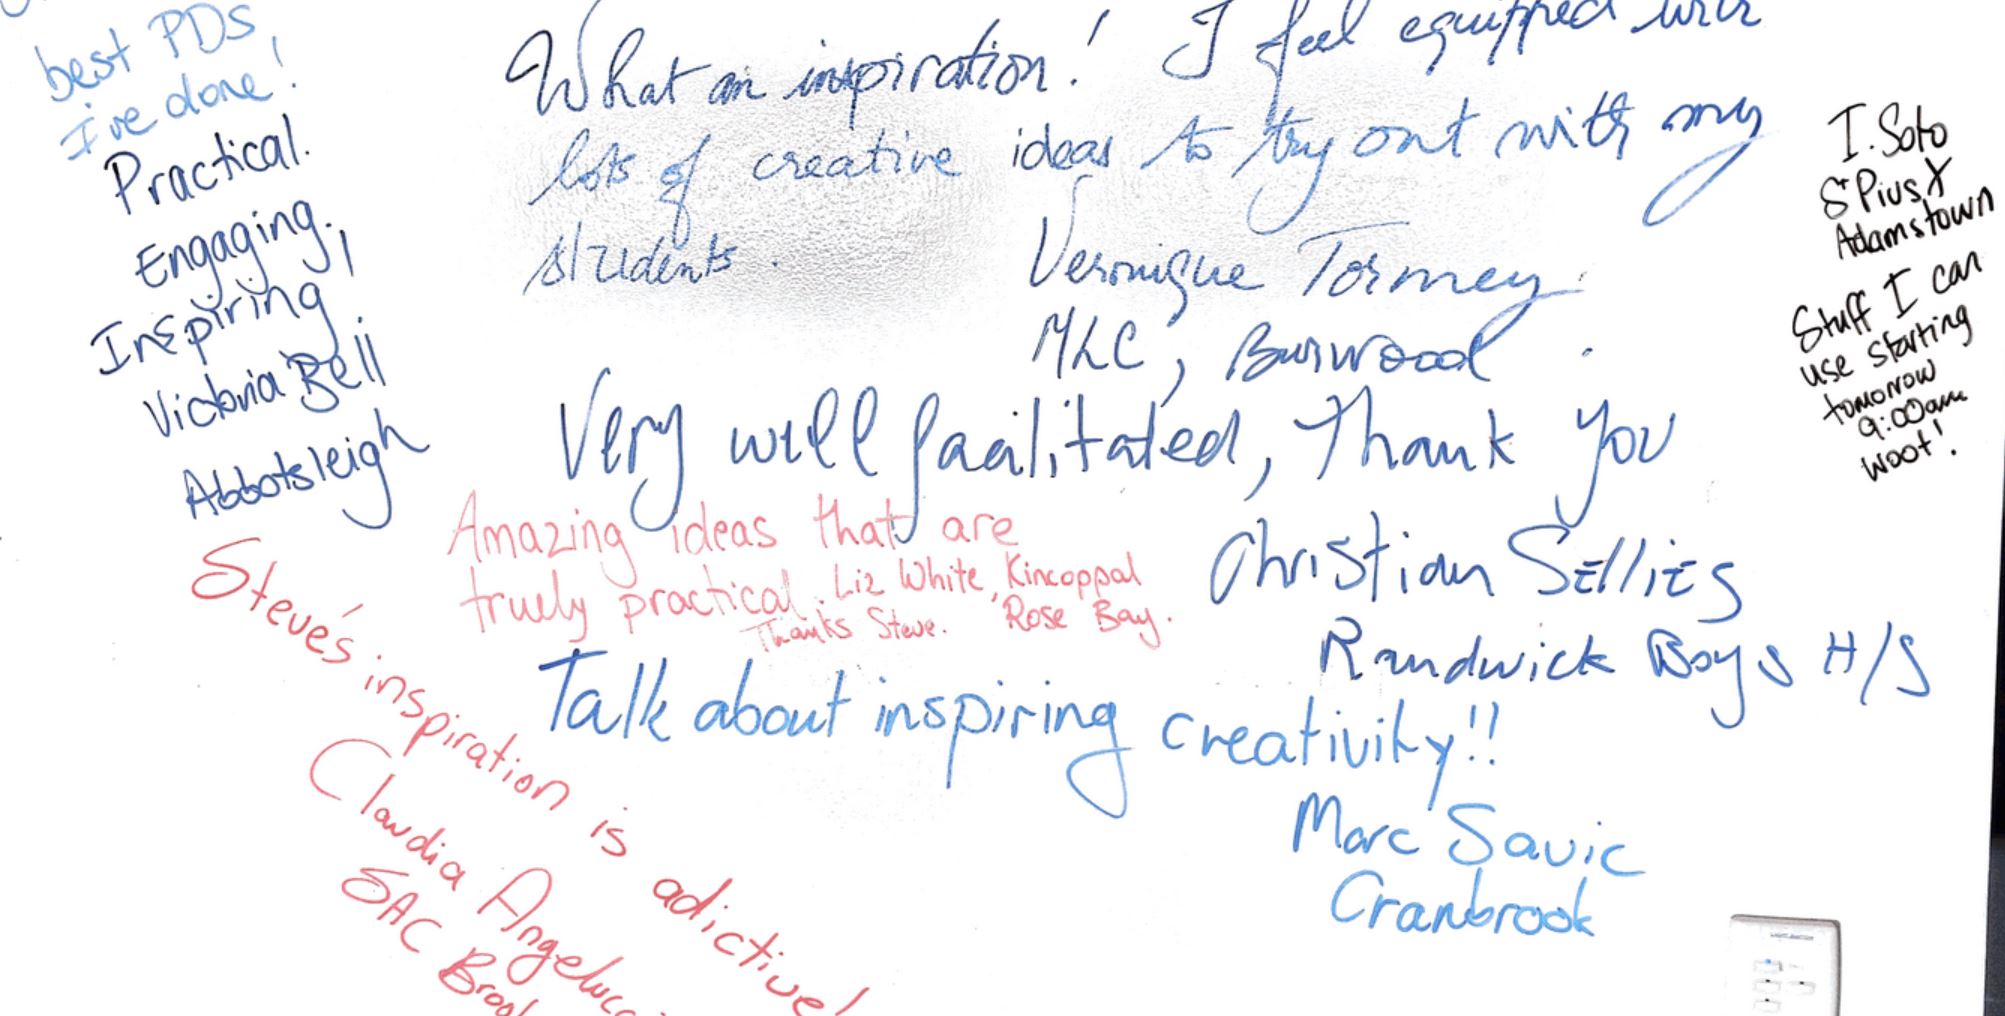 best PDS,
I've done!
Practical.
Engaging.
Inspiring!
Victoria Bell
Abbotsleigh
What an inspiration! I feel equipped with
lots of creative ideas to try out with my
students.
Veronique Tormey.
MLC, Burwood.
I. Soto
St Pius X
Adamstown
Stuff I can
use starting
tomorrow
9:00am
woot!
Very well facilitated, Thank you
Christian Sellies
Randwick Boys H/S
Amazing ideas that are
truely practical. Liz White, Kincoppal
Thanks Steve. Rose Bay.
Talk about inspiring creativity!!
Marc Savic
Cranbrook
Steve's inspiration is adictive!
Claudia Angelucci
SAC